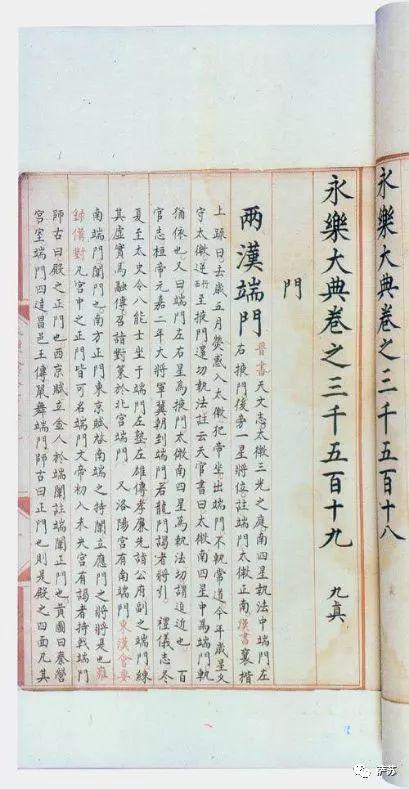 永樂大典卷之三千五百十八
永樂大典卷之三千五百十九 九真
門
兩漢端門 晉書天文志太微三光之庭南四星執法中端門左
右掖門後旁一星將位註端門太微正南漢書襄楷
上疏曰去歲五月熒惑入太微犯帝坐出端門不軌常道今年歲星文
守太微逆西行至掖門還切執法註云天官書曰太微南四星中為端門執
猶依也又曰端門左右星為掖門太微南四星為執法切謂迫近也 百
官志桓帝元嘉二年大將軍冀朝到端門若龍門謁者將引 禮儀志冬
夏至太史令八能士坐于端門左塾左雄傳孝廉先詣公府副之端門練
其虛實馬融傳召詣對策於北宮端門 又洛陽宮有南端門東漢會要
南端門闈門也南方正門東京賦啟南端之特闈立應門之將將是也雍
錄儀對凡宮中之正門皆可名端門文帝初入未央宮有謁者持戟端門
師古曰殿之正門也西京賦立金人於端闈註端闈正門也黃圖曰秦營
宮室端門四達昌邑王傳鼠舞端門師古曰正門也則是殿之四面凡其
萨苏